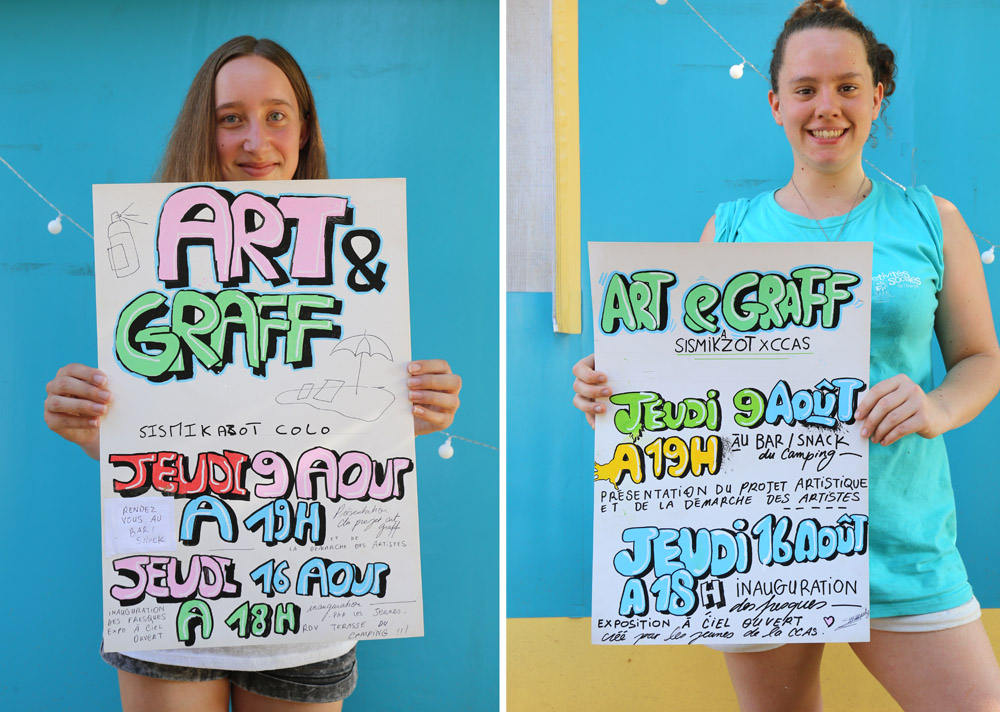 ART &
GRAFF
SISMIKAZOT COLO
JEUDI 9 AOUT
A 19H
RENDEZ
VOUS AU
BAR/
SNACK
Présentation
du projet art
graff
ET DE
LA DÉMARCHE DES ARTISTES
JEUDI 16 AOUT
A 18H
INAUGURATION
DES FRESQUES
EXPO A CIEL
OUVERT
inauguration
PAR LES JEUNES
RDV TERASSE DU
CAMPING !!!
ART & GRAFF
SISMIKAZOT X CCAS
JEUDI 9 AOÛT
A 19H
AU BAR/SNACK
du Camping
PRÉSENTATION DU PROJET ARTISTIQUE
ET DE LA DÉMARCHE DES ARTISTES
JEUDI 16 AOÛT
A 18H
INAUGURATION
des fresques
EXPOSITION À CIEL OUVERT
créé par les jeunes de la CCAS.
activités
sociales